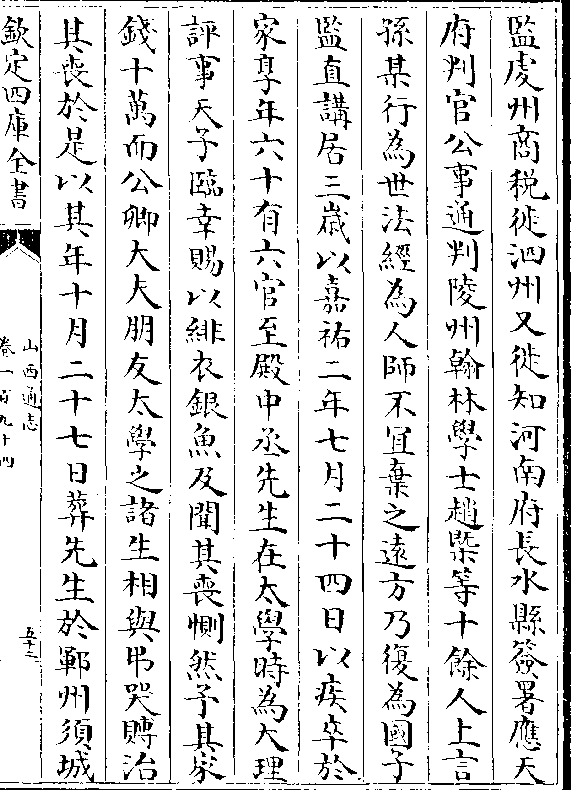 監䖍州商税徙泗州又徙知河南府長水縣簽署應天
府判官公事通判陵州翰林學士趙槩等十餘人上言
孫某行為世法經為人師不宜棄之遠方乃復為國子
監直講居三嵗以嘉祐二年七月二十四日以疾卒於
家享年六十有六官至殿中丞先生在太學時為大理
評事天子臨幸賜以緋衣銀魚及聞其喪惻然予其家
錢十萬而公卿大夫朋友太學之諸生相與弔哭賻治
其喪於是以其年十月二十七日葬先生於鄆州須城
欽定四庫全書
山西通志
卷一百九十四
五十二